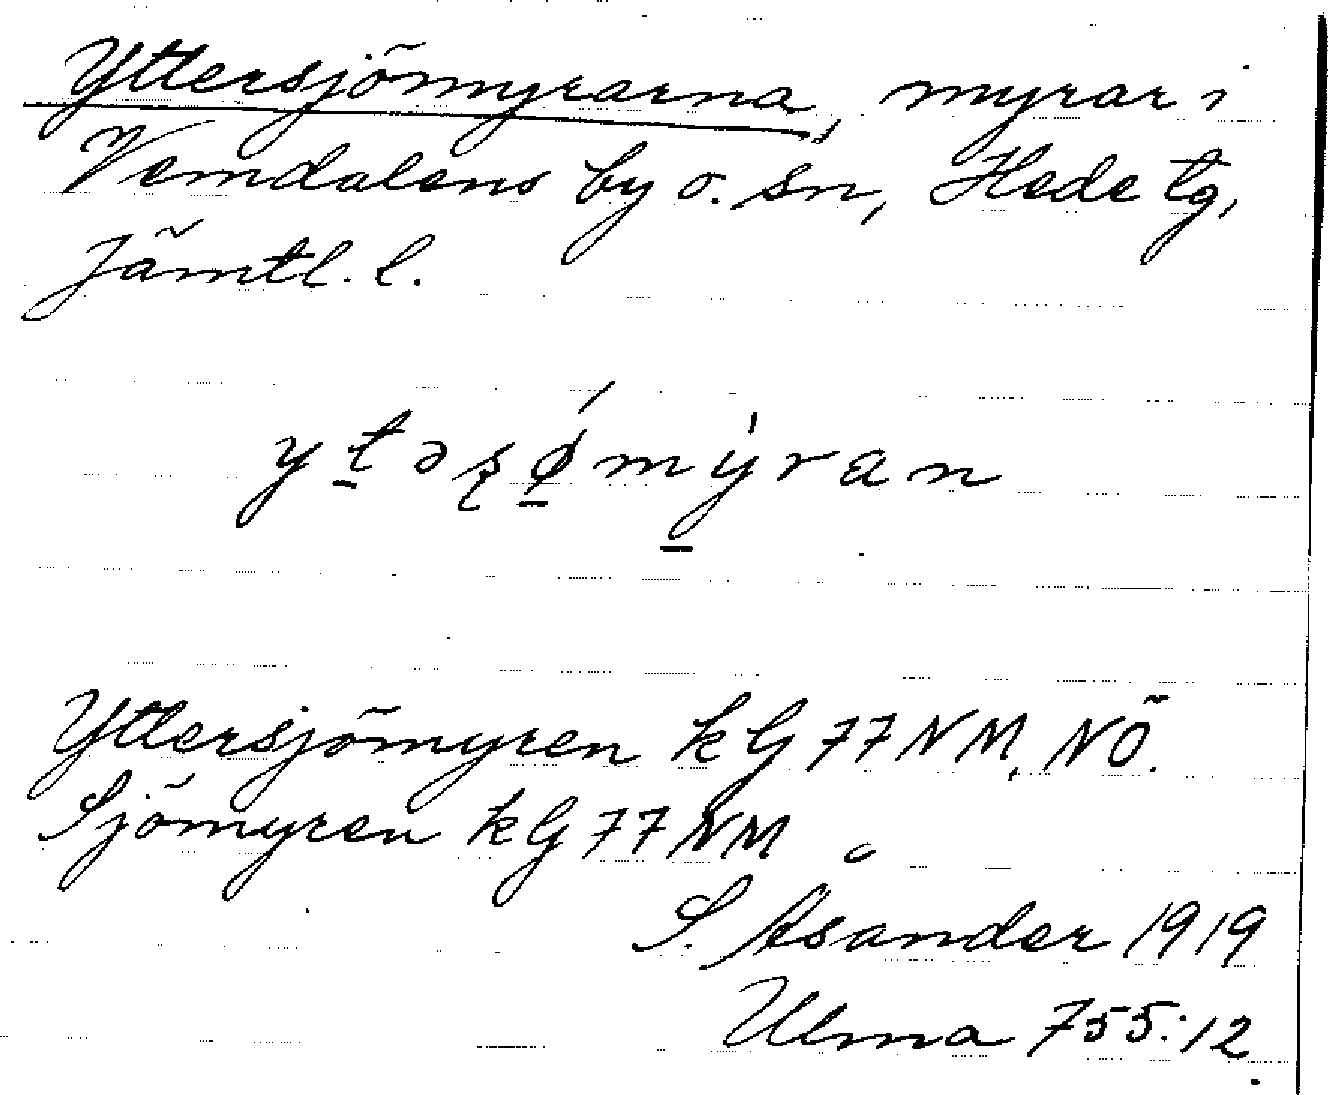 Yttersjömyrarna, myrar i
Vemdalens by o. sn, Hede tg,
Jämtl. l.
yt̲əʂǿ̲my̲̍ran
Yttersjömyren kG 77 NM, NÖ.
Sjömyren kG 77 NM
S. Åsander 1919
Ulma 755:12